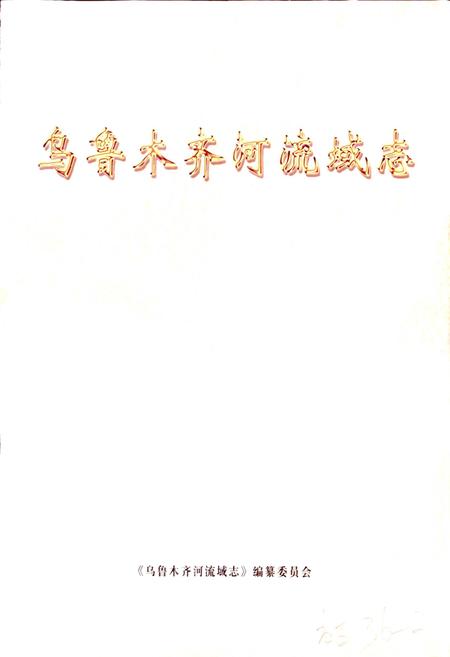 乌鲁木齐河流域志
《乌鲁木齐河流域志》编纂委员会